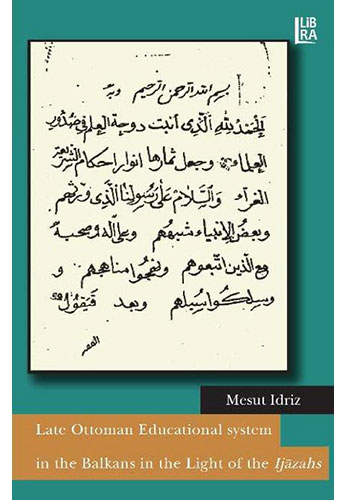 LiB
RA
بسم الله الرحمن الرحيم وبه
الحمد لله الذي أنبت دوحة العلم في صدور
العلماء وجعل ثمارها انوار احكام الشريعة
الغراء والسلام على رسولنا الذي ورثهم
وبعض الانبياء شبههم وعلى آله وصحبه
مع الذين اتبعوهم ونهجوا مناهجهم و
وسلكوا سبيلهم وبعد فيقول
الفقير
Mesut Idriz
Late Ottoman Educational system
in the Balkans in the Light of the Ijāzahs